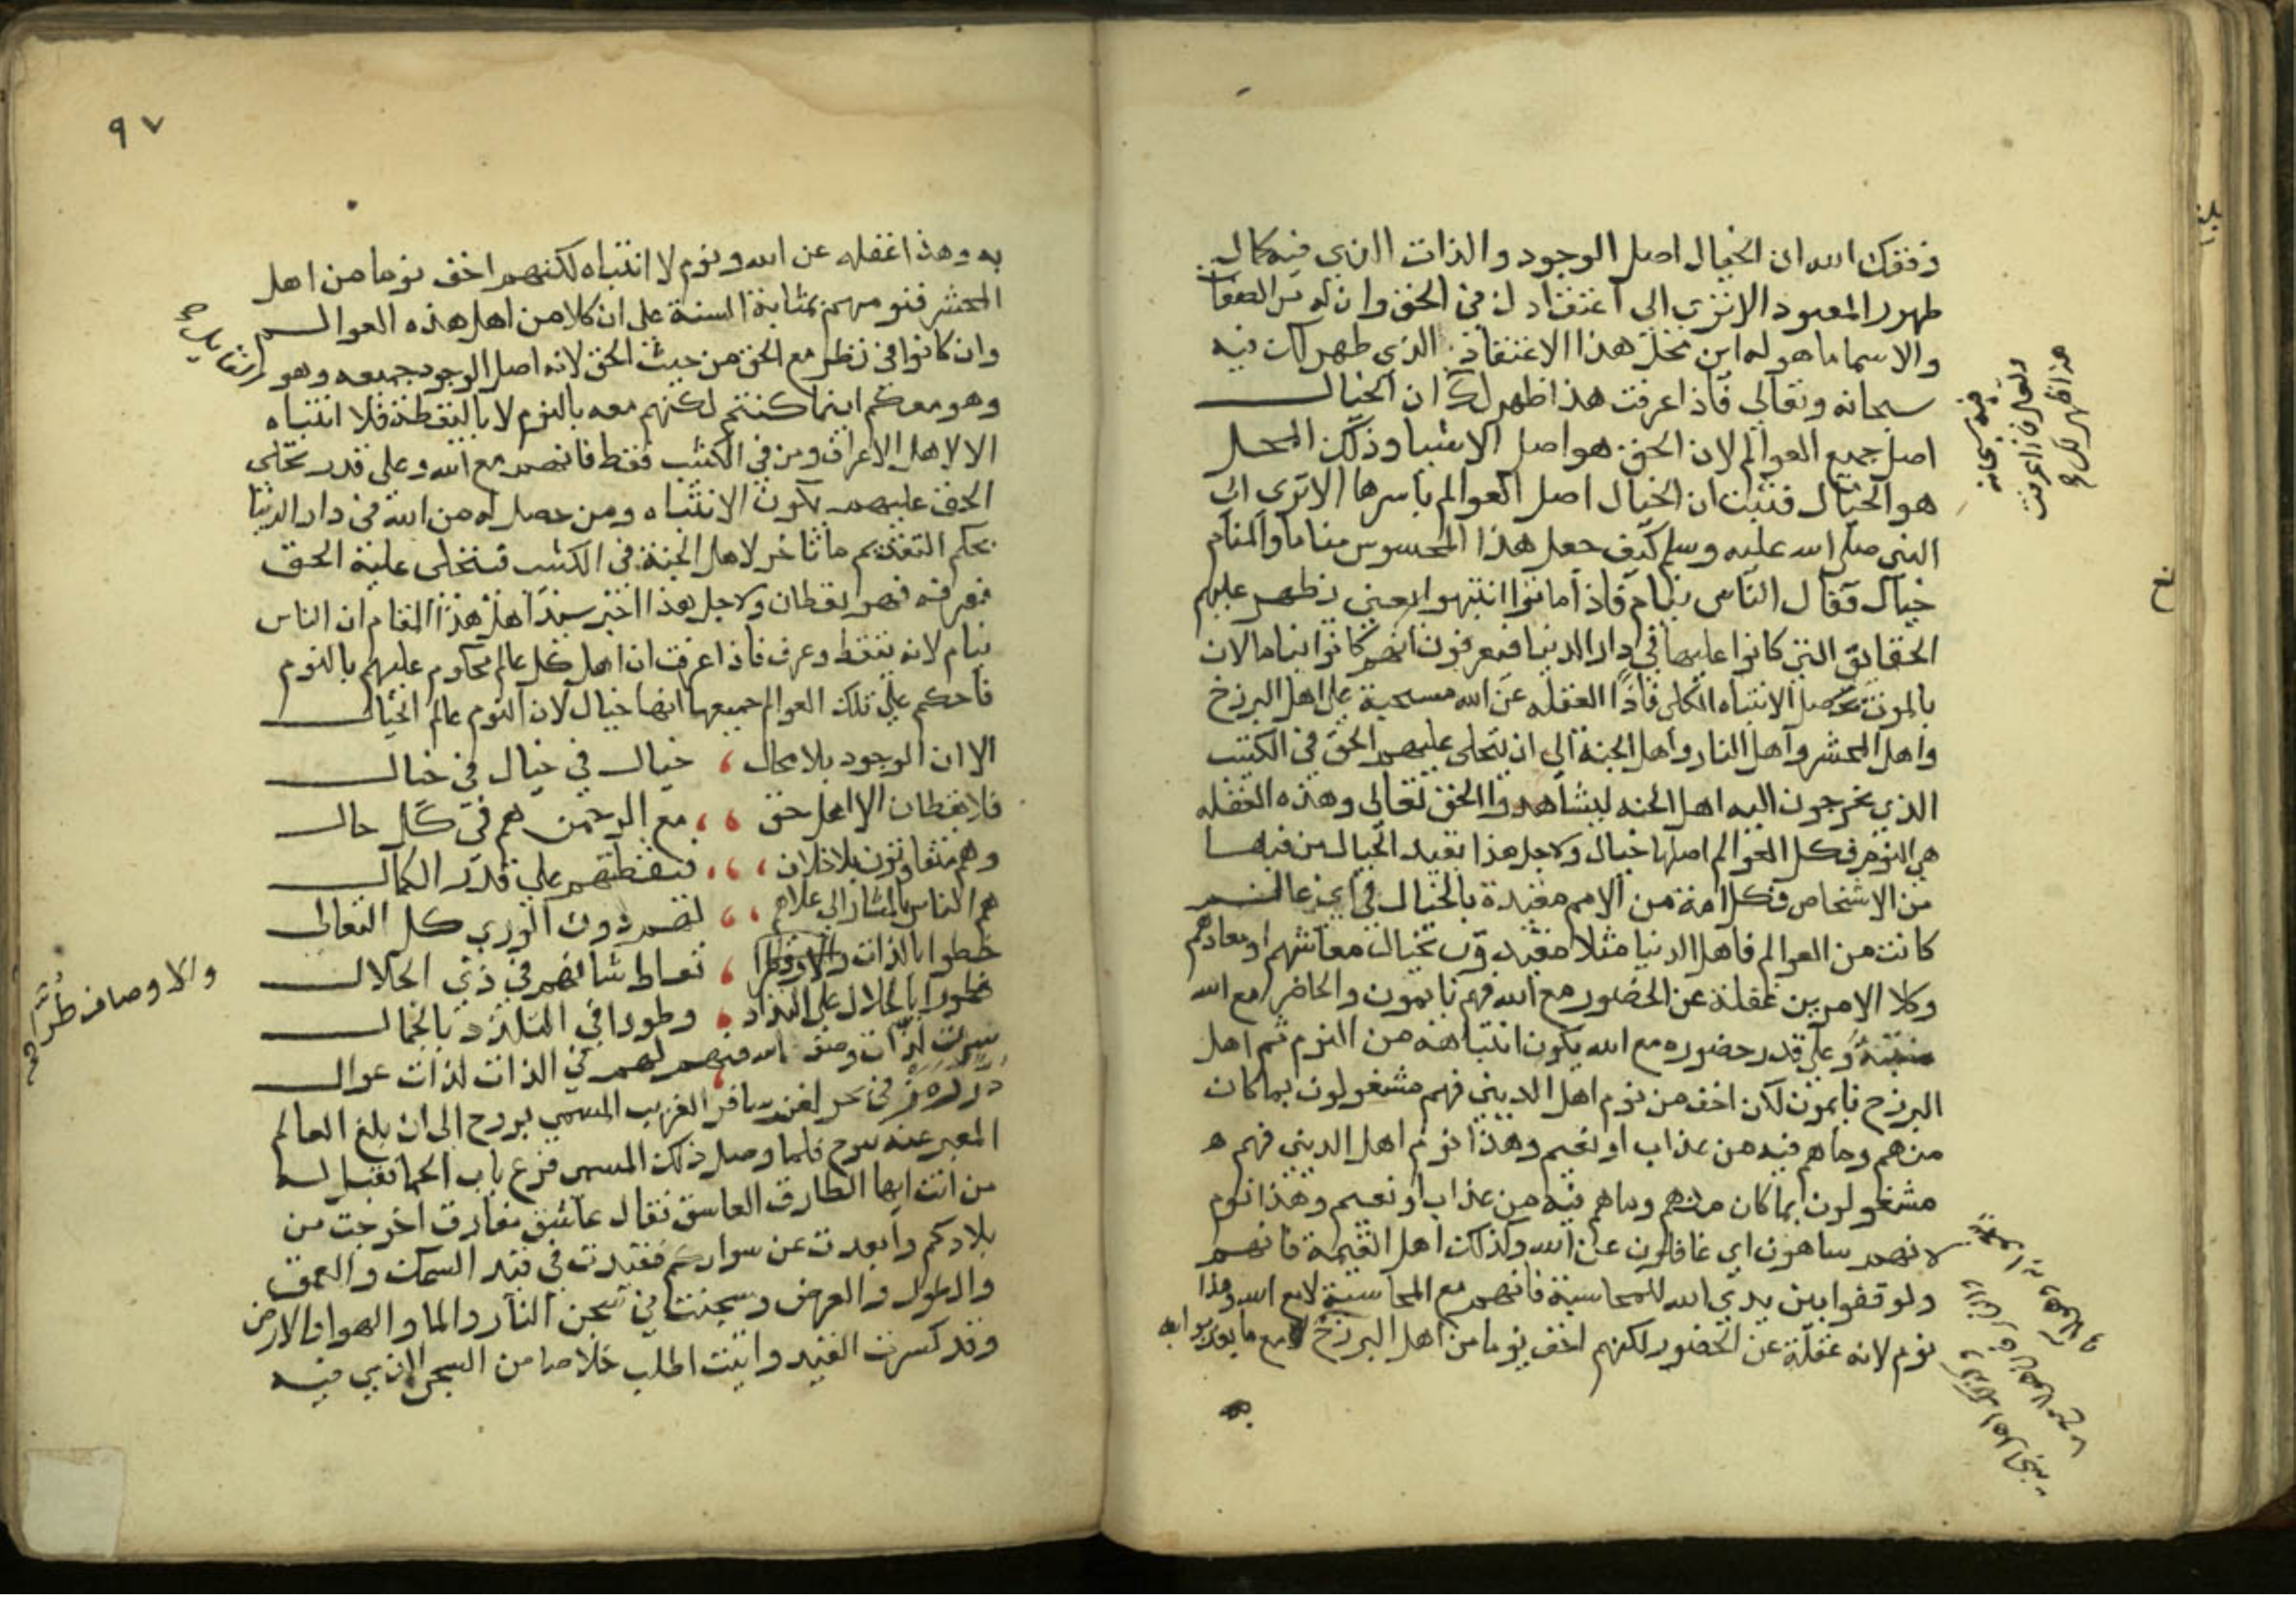 وفقك الله ان الخيال اصل الوجود والذات الذي فيه كمال
ظهور المعبود الا تري الى اعتقادك في الحق وان له من الصفات
والاسما ما هو له اين محل هذا الاعتقاد الذي ظهر لك فيه
سبحانه وتعالي فاذا عرفت هذا ظهر لك ان الخيال
اصل جميع العوالم لان الحق هو اصل الاشيا وذلك المحل
هو الخيال فثبت ان الخيال اصل العوالم باسرها الا تري الي
النبي صلى الله عليه وسلم كيف جعل هذا المحسوس مناما والمنام
خيال فقال الناس نيام فاذا ماتوا انتبهوا يعني تظهر عليهم
الحقايق التي كانوا عليها في دار الدنيا فيعرفون انهم كانوا نياما لا ان
بالموت يحصل الانتباه الكلي فاذا الغفله عن الله مسحبة على اهل البرزخ
واهل المحشر واهل النار واهل الجنة الي ان يتجلى عليهم الحق في الكثيب
الذي يخرجون اليه اهل الجنه ليشاهدوا الحق تعالى وهذه الغفله
هي النوم فكل العوالم اصلها خيال ولاجل هذا يقيد الخيال من فيها
من الاشخاص فكل امة من الامم مقيدة بالخيال في اي عالم
كانت من العوالم فاهل الدنيا مثلا مقيدون بخيال معاشهم او معادهم
وكلا الامرين غفلة عن الحضور مع الله فهم نايمون والحاضر مع الله
منتبه وعلى قدر حضوره مع الله يكون انتباهه من النوم ثم اهل
البرزخ نايمون لكن اخف من نوم اهل الدنيي فهم مشغولون بما كان
منهم وما هم فيه من عذاب او نعيم وهذا نوم اهل الدنيي فهم
مشغولون بما كان منهم وما هم فيه من عذاب او نعيم وهذا نوم
لانهم ساهون اي غافلون عن الله وكذلك اهل القيمة فانهم
ولو قفوا بين يدي الله للمحاسبة فانهم مع المحاسبة لا مع الله وهذا
نوم لانه غفلة عن الحضور لكنهم اخف نوما من اهل البرزخ
فيه سبحانه
وتعالى فاذا عرفت
هذا ظهر لك
٩٧
به وهذا غفله عن الله ونوم لا انتباه لكنهم اخف نوما من اهل
المحشر فنومهم بمثابة السنة على ان كلا من اهل هذه العوالم
وان كانوا في نظر مع الحق من حيث الحق لانه اصل الوجود جميعه وهو
وهو معكم اينما كنتم لكنهم معه بالنوم لا باليقظة فلا انتباه
الا لاهل الاعراف ومن في الكثيب فقط فانهم مع الله وعلى قدر تجلي
الحق عليهم يكون الانتباه ومن حصل له من الله في دار الدنيا
بحكم التقديم ما تاخر لاهل الجنة في الكثيب فتجلى عليه الحق
فعرفه فهو يقظان ولاجل هذا اخبر سيد اهل هذا المقام ان الناس
نيام لانه تيقظ وعرف فاذا عرفت ان اهل كل عالم محكوم عليهم بالنوم
فاحكم على تلك العوالم جميعها انها خيال لان النوم عالم الخيال
الا ان الوجود بلا محال ، خيال في خيال في خيال
فلا يقظان الا اهل حق ، ، مع الرحمن هم في كل حال
وهم متفاوتون بلا خلاف ، ، ، فيقظتهم على قدر الكمال
هم الناس المشار الي علاهم ، ، لهم دون الوري كل التعالى
حظوا بالذات والاوصاف طرا ، تعاظم شانهم في ذي الجلال
فطورا بالجلال على التذاذ ، وطورا في التلذذ بالجمال
سرت لذات وصف الله فيهم لهم في الذات لذات عوال
في بحر لغز سافر الغريب المسمي بروح الى ان بلغ العالم
المعبر عنه بيوح فلما وصل ذلك المسمى قرع باب الحما فقيل له
من انت ايها الطارق العاشق فقال عاشق مفارق اخرجت من
بلادكم وابعدت عن سوادكم فقيدت في قيد السمك والعمق
والطول والعرض وسجنت في سجن النار والما والهوا والارض
وقد كسرت القيد واتيت اطلب خلاصا من السجن الذي فيه
والاوصاف طرا